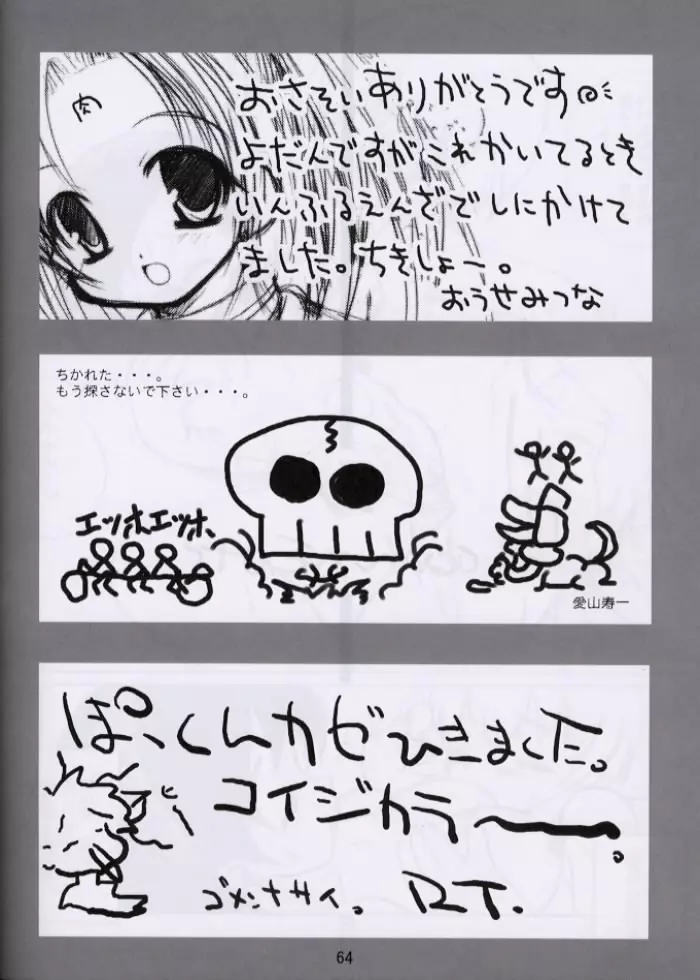 肉
おさそいありがとうです
よだんですがこれかいてるとき
いんふるえんざでしにかけて
ました。ちきしょー。
おうせみつな
ちかれた・・・。
もう探さないで下さい・・・。
エッホエッホ
愛山寿一
ぽっくんカゼひきました。
コイジカラー。
ゴメンナサイ。 RT.
64